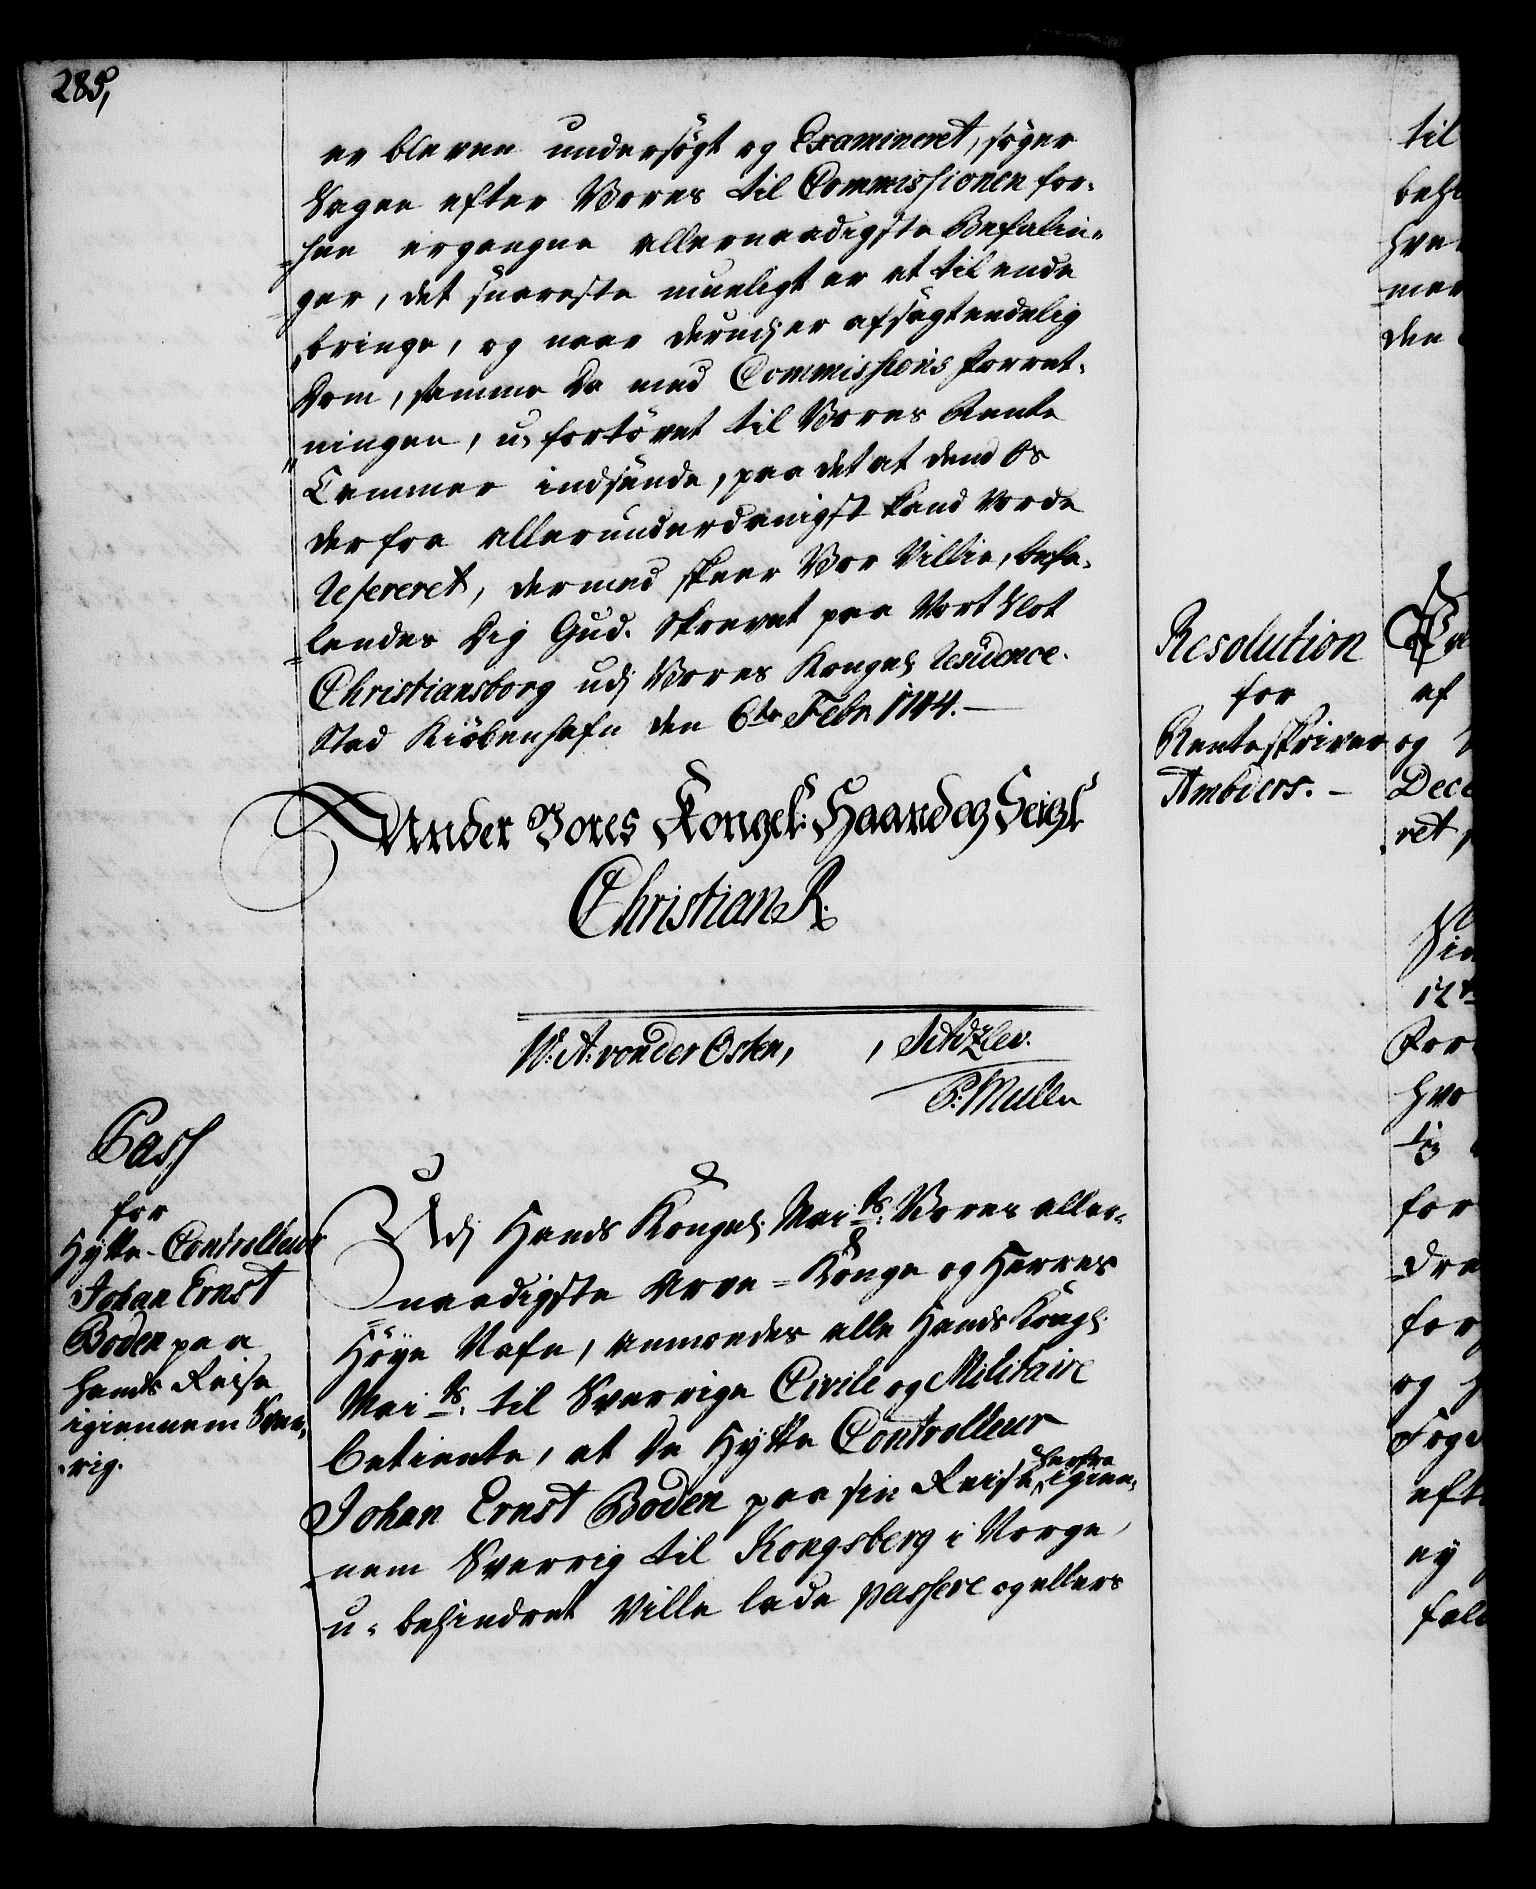 285,
er bleven undersögt og Examineret, söger
Sagen efter Vores til Commissionen for-
hen ergangne allernaadigste Befalin-
ger, det snareste mueligt er at til ende
bringe, og naar derudj er afsagt endelig
Dom, samme Da med Commissions forret-
ningen, u-fortövet til Vores Rente
Cammer indsende, paa det at dend Os
derfra allerunderdanigst kand vorde
Refereret, dermed skeer Vor Villie, befa-
lendes Dig Gud. Skrevet paa Vort Slot
Christiansborg udj Vores Kongel. Residence-
Stad Kiöbenhafn den 6te Febr. 1744.
Under Vores Kongel: Haand og Seigl
Christian R.
W. A. von der Osken, , Schözler.
P. Muller
Pass
for
Hytte-Controlleur
Johan Ernst
Boden paa
hands Reise
igiennem Sver-
rig.
Udj Hands Kongel. Maits. Vores aller-
naadigste Arve-Konge og Herres
Höye Nafn, anmodes alle Hands Kongl.
Maits. til Sverrige Civile og Militaire
betiente, at De Hytte Controlleur
Johan Ernst Boden paa sin Reise herfra igien-
nem Sverrig til Kongsberg i Norge,
u-behindret ville lade passere og ellers
Resolution
for
Renteskriver
Ambders.
til
den
af
og
Dece
ret
for
og
ey